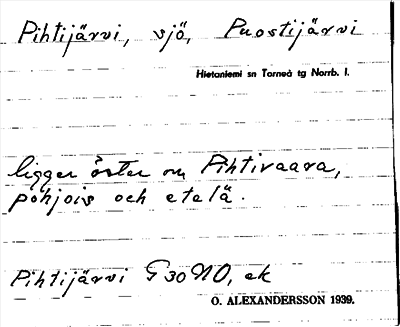 Pihtijärvi, sjö, Puostijärvi
Hietaniemi sn Torneå tg Norrb. l.
ligger öster om Pihtivaara,
pohjois och etelä.
Pihtijärvi G 30 NO, ek
O. ALEXANDERSSON 1939.